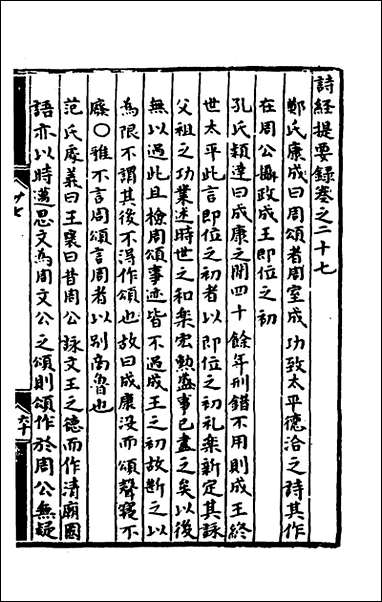 詩経提要録巻之二十七
鄭氏康成曰周頌者周室成功致太平德洽之詩其作
在周公攝政成王即位之初
孔氏穎達曰成康之間四十餘年刑錯不用則成王終
世太平此言即位之初者以即位之初礼樂新定其詠
父祖之功業述時世之和樂宏勲盛事已盡之矣以後
無以過此且檢周頌事迹皆不過成王之初故斷之以
為限不謂其後不得作頌也故曰成康没而頌聲寝不
廢〇雅不言周頌言周者以别商魯也
范氏處義曰王襃曰昔周公詠文王之德而作清廟國
語亦以時邁思文為周文公之頌則頌作於周公無疑
廿七